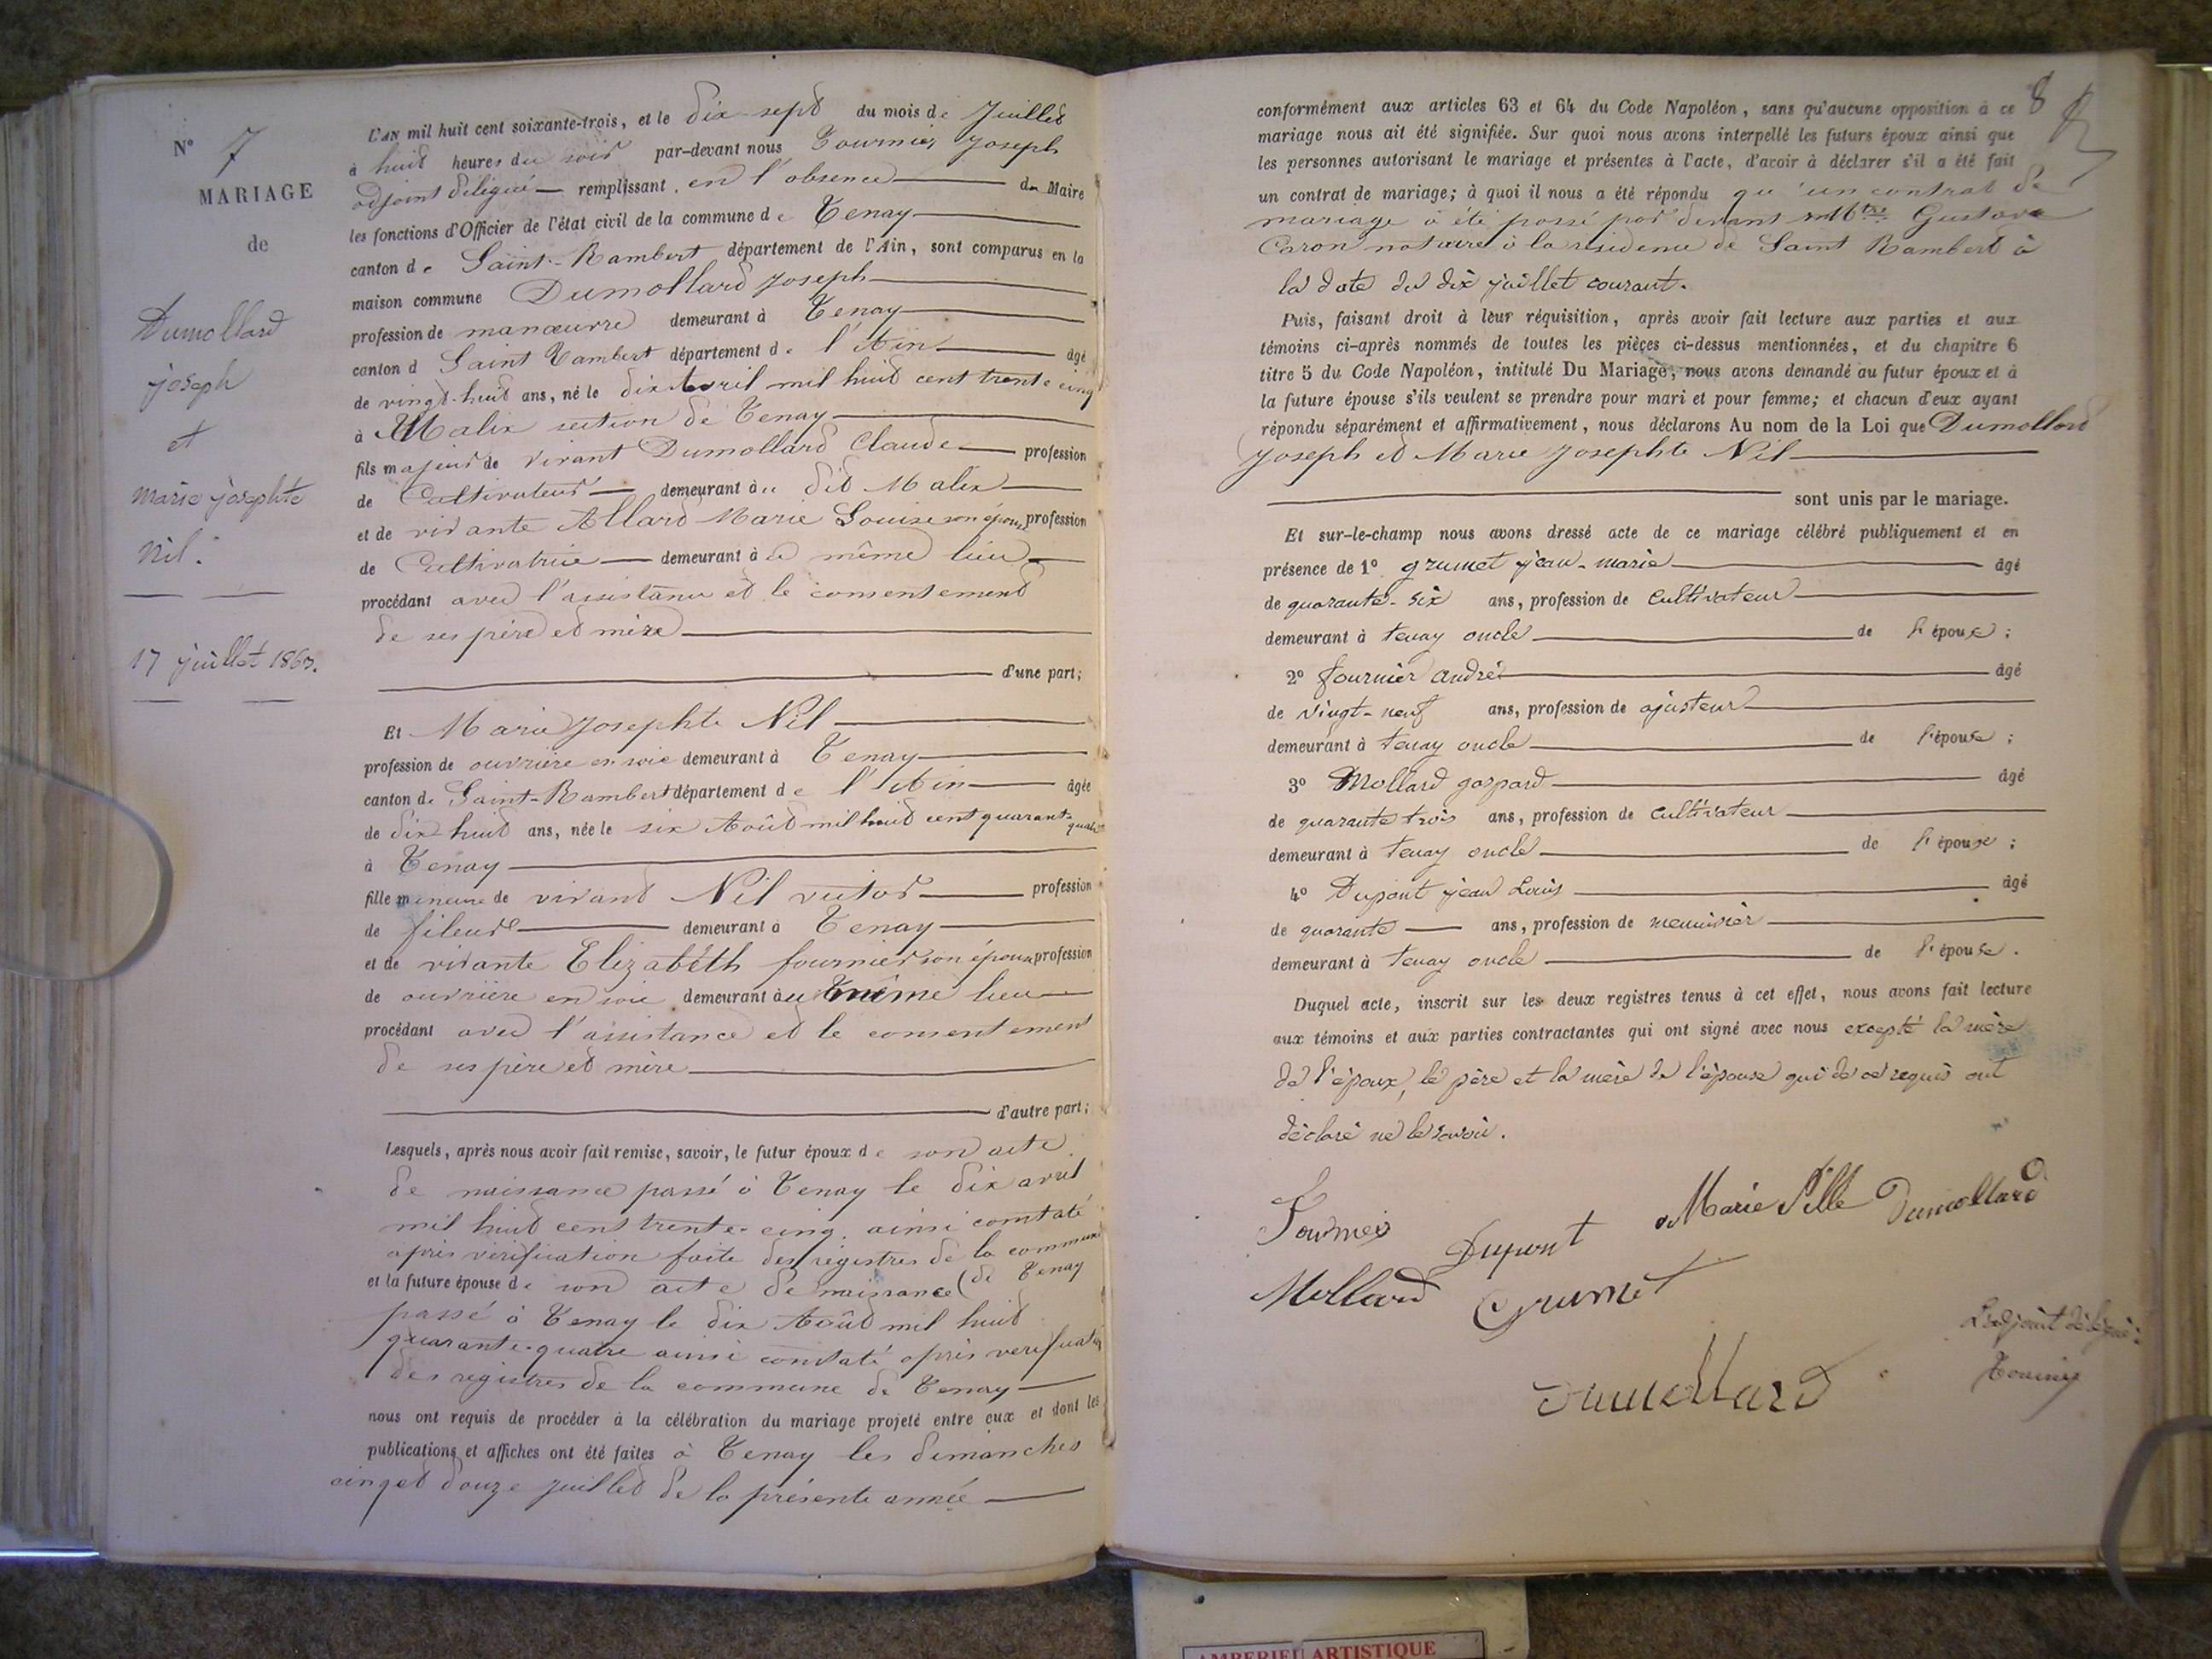 N° 7
MARIAGE
de
Dumollard
joseph
et
marie josephte
Nil.
17 juillet 1863.
L'AN mil huit cent soixante-trois, et le dix-sept du mois de Juillet
à huit heures du soir par-devant nous Joseph
adjoint délégué remplissant en l'absence du Maire
les fonctions d'Officier de l'état civil de la commune de Tenay
canton de Saint-Rambert département de l'Ain, sont comparus en la
maison commune Dumollard Joseph
profession de manœuvre demeurant à Tenay
canton d Saint Rambert département de l'Ain âgé
de vingt-huit ans, né le dix Avril mil huit cent trente cinq
à Malix section de Tenay
fils majeur de vivant Dumollard Claude profession
de Cultivateur demeurant au dit Malix
et de vivante Allard Marie Louise son épouse profession
de Cultivatrice demeurant à ce même lieu
procédant avec l'assistance et le consentement
de ses père et mère
d'une part;
Et Marie Josephte Nil
profession de ouvrière en soie demeurant à Tenay
canton de Saint-Rambert département de l'Ain âgée
de dix huit ans, née le six Août mil huit cent quarante quatre
à Tenay
fille mineure de vivant Nil victor profession
de fileur demeurant à Tenay
et de vivante Elizabéth fournier son épouse profession
de ouvrière en soie demeurant au même lieu
procédant avec l'assistance et le consentement
de ses père et mère
d'autre part;
Lesquels, après nous avoir fait remise, savoir, le futur époux de son acte
de naissance passé à Tenay le dix avril
mil huit cent trente-cinq, ainsi constaté
après vérification faite des registres de la commune
et la future épouse de son acte de naissance (de Tenay
passé à Tenay le dix Août mil huit
quarante-quatre ainsi constaté après verification
des registres de la commune de Tenay
nous ont requis de procéder à la célébration du mariage projeté entre eux et dont les
publications et affiches ont été faites à Tenay les dimanches
cinq et douze juillet de la présente année
8
conformément aux articles 63 et 64 du Code Napoléon, sans qu'aucune opposition à ce
mariage nous ait été signifiée. Sur quoi nous avons interpellé les futurs époux ainsi que
les personnes autorisant le mariage et présentes à l'acte, d'avoir à déclarer s'il a été fait
un contrat de mariage; à quoi il nous a été répondu qu'un contrat de
mariage a été passé par devant Mtre Gustave
Carron notaire à la résidence de Saint Rambert à
la date du dix juillet courant.
Puis, faisant droit à leur réquisition, après avoir fait lecture aux parties et aux
témoins ci-après nommés de toutes les pièces ci-dessus mentionnées, et du chapitre 6
titre 5 du Code Napoléon, intitulé Du Mariage, nous avons demandé au futur époux et à
la future épouse s'ils veulent se prendre pour mari et pour femme; et chacun d'eux ayant
répondu séparément et affirmativement, nous déclarons Au nom de la Loi que Dumollard
Joseph et Marie Josephte Nil
sont unis par le mariage.
Et sur-le-champ nous avons dressé acte de ce mariage célébré publiquement et en
présence de 1° grumet jean-marie âgé
de quarante-six ans, profession de cultivateur
demeurant à tenay oncle de l'épouse;
2° fournier andré âgé
de vingt-neuf ans, profession de ajusteur
demeurant à tenay oncle de l'épouse;
3° Mollard gaspard âgé
de quarante trois ans, profession de cultivateur
demeurant à tenay oncle de l'épouse;
4° Dupont jean Louis âgé
de quarante ans, profession de menuisier
demeurant à tenay oncle de l'épouse.
Duquel acte, inscrit sur les deux registres tenus à cet effet, nous avons fait lecture
aux témoins et aux parties contractantes qui ont signé avec nous excepté la mère
de l'époux, le père et la mère de l'épouse qui de ce requis ont
déclaré ne le savoir.
Fournier Dupont Marie Nille Dumollard
Mollard Grumet
L'adjoint délégué:
Dumollard
AMBERIEU ARTISTIQUE